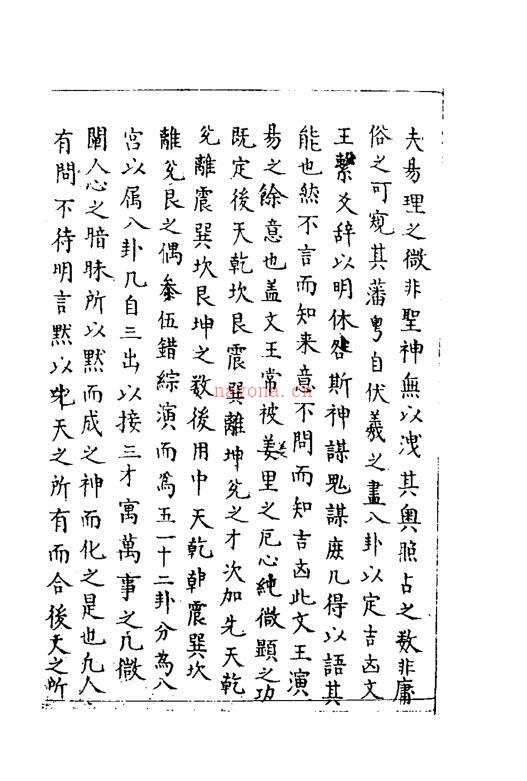 夫易理之微非聖神無以洩其奧照占之数非庸
俗之可窺其藩粵自伏羲之畫八卦以定吉凶文
王繫爻辭以明休咎斯神謀鬼謀庶几得以語其
能也然不言而知来意不問而知吉凶此文王演
易之餘意也盖文王常被羑里之厄心純微顯之功
既定後天乾坎艮震巽離坤兌之才次加先天乾
兌離震巽坎艮坤之数後用中天乾 震巽坎
離兌艮之偶叅伍錯綜演而為五一十二卦分為八
宮以属八卦几自三出以接三才寓萬事之几微
闡人心之暗昧所以默而成之神而化之是也凢人
有問不待明言黙以 天之所有而合後天之所
nayona.cn